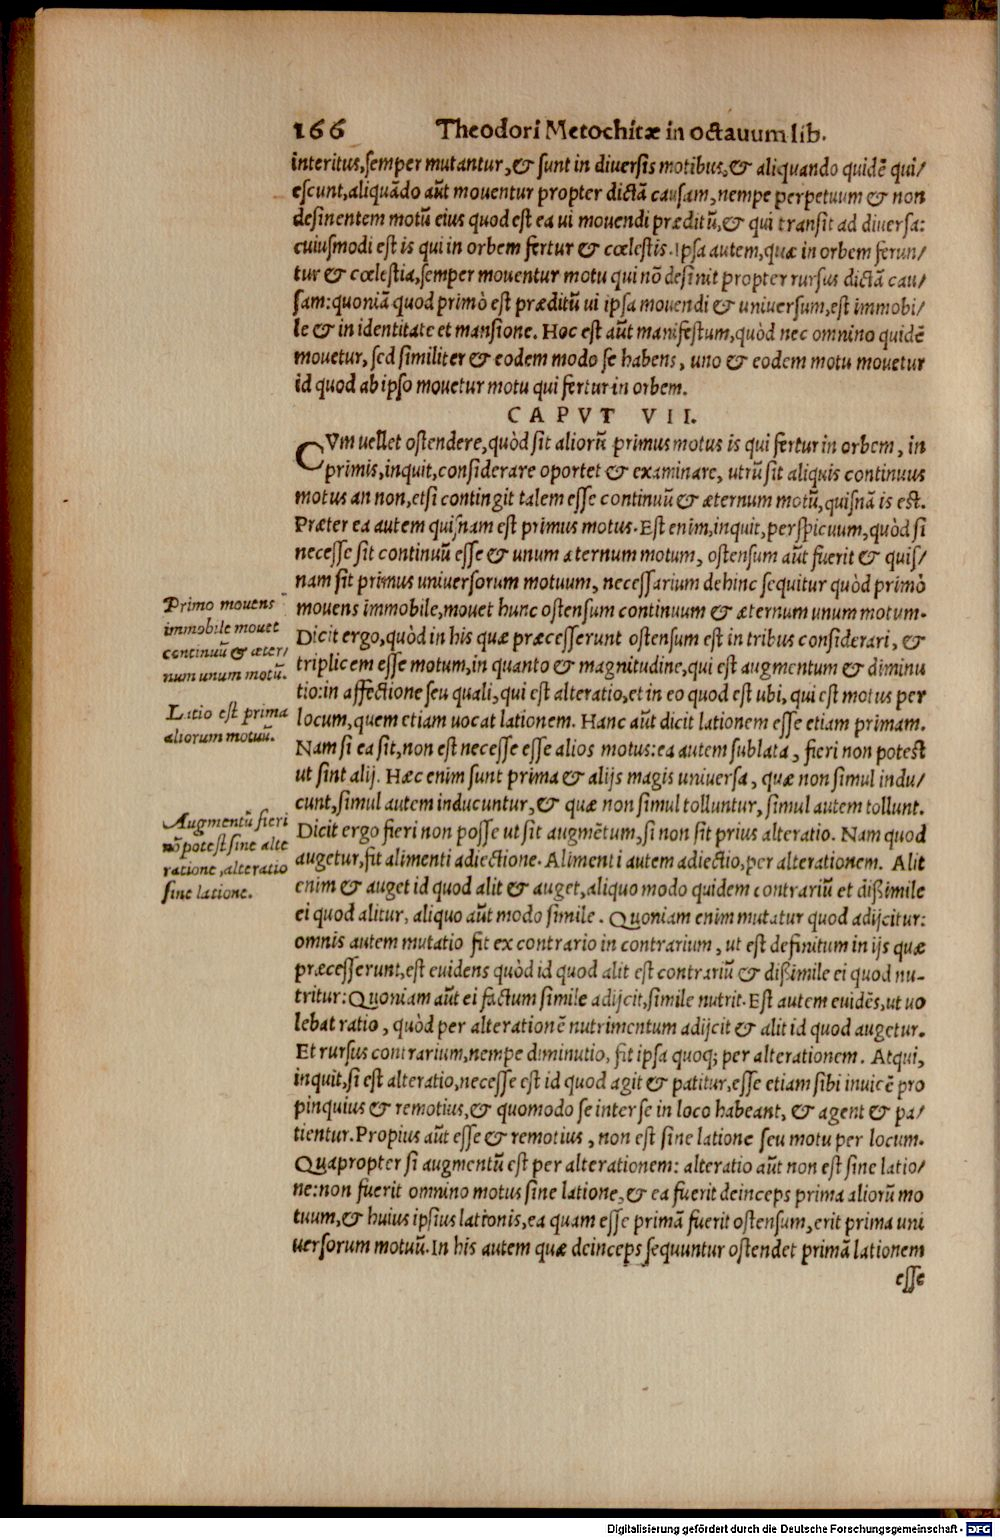 166 Theodori Metochitæ in octavum lib.
interitus, semper mutantur, & sunt in diversis motibus, & aliquando quidē qui/
escunt, aliquādo aūt moventur propter dictā causam, nempe perpetuum & non
desinentem motū eius quod est ea ui movendi præditū, & qui transit ad diversa:
cuiusmodi est is qui in orbem fertur & cœlestis. Ipsa autem, quæ in orbem ferun/
tur & cœlestia, semper moventur motu qui nō desinit propter rursus dictā cau/
sam: quoniā quod primò est præditū ui ipsa movendi & universum, est immobi/
le & in identitate et mansione. Hoc est aūt manifestum, quòd nec omnino quidē
movetur, sed similiter & eodem modo se habens, uno & eodem motu movetur
id quod ab ipso movetur motu qui fertur in orbem.
CAPVT VII.
CVm uellet ostendere, quòd sit aliorū primus motus is qui fertur in orbem, in
primis, inquit, considerare oportet & examinare, utrū sit aliquis continuus
motus an non, etsi contingit talem esse continuū & æternum motū, quisnā is est.
Præter ea autem quisnam est primus motus. Est enim, inquit, perspicuum, quòd si
necesse sit continuū esse & unum æternum motum, ostensum aūt fuerit & quis/
nam sit primus universorum motuum, necessarium dehinc sequitur quòd primò
movens immobile, movet hunc ostensum continuum & æternum unum motum.
Dicit ergo, quòd in his quæ præcesserunt ostensum est in tribus considerari, &
triplicem esse motum, in quanto & magnitudine, qui est augmentum & diminu
tio: in affectione seu quali, qui est alteratio, et in eo quod est ubi, qui est motus per
locum, quem etiam uocat lationem. Hanc aūt dicit lationem esse etiam primam.
Nam si ea sit, non est necesse esse alios motus: ea autem sublata, fieri non potest
ut sint alij. Hæc enim sunt prima & alijs magis universa, quæ non simul indu/
cunt, simul autem inducuntur, & quæ non simul tolluntur, simul autem tollunt.
Dicit ergo fieri non posse ut sit augmētum, si non sit prius alteratio. Nam quod
augetur, fit alimenti adiectione. Alimenti autem adiectio, per alterationem. Alit
enim & auget id quod alit & auget, aliquo modo quidem contrariū et dißimile
ei quod alitur, aliquo aūt modo simile. Quoniam enim mutatur quod adijcitur:
omnis autem mutatio fit ex contrario in contrarium, ut est definitum in ijs quæ
præcesserunt, est euidens quòd id quod alit est contrariū & dißimile ei quod nu-
tritur: Quoniam aūt ei factum simile adijcit, simile nutrit. Est autem euidēs, ut uo
lebat ratio, quòd per alterationē nutrimentum adijcit & alit id quod augetur.
Et rursus contrarium, nempe diminutio, fit ipsa quoq; per alterationem. Atqui,
inquit, si est alteratio, necesse est id quod agit & patitur, esse etiam sibi invicē pro
pinquius & remotius, & quomodo se inter se in loco habeant, & agent & pa/
tientur. Propius aūt esse & remotius, non est sine latione seu motu per locum.
Quapropter si augmentū est per alterationem: alteratio aūt non est sine latio/
ne: non fuerit omnino motus sine latione, & ea fuerit deinceps prima aliorū mo
tuum, & huius ipsius lationis, ea quam esse primā fuerit ostensum, erit prima uni
versorum motuū. In his autem quæ deinceps sequuntur ostendet primā lationem
esse
Primo movens
immobile movet
continuū & æter/
num unum motū.
Latio est prima
aliorum motuū.
Augmentū fieri
nō potest sine alte
ratione, alteratio
sine latione.
Digitalisierung gefördert durch die Deutsche Forschungsgemeinschaft - DFG